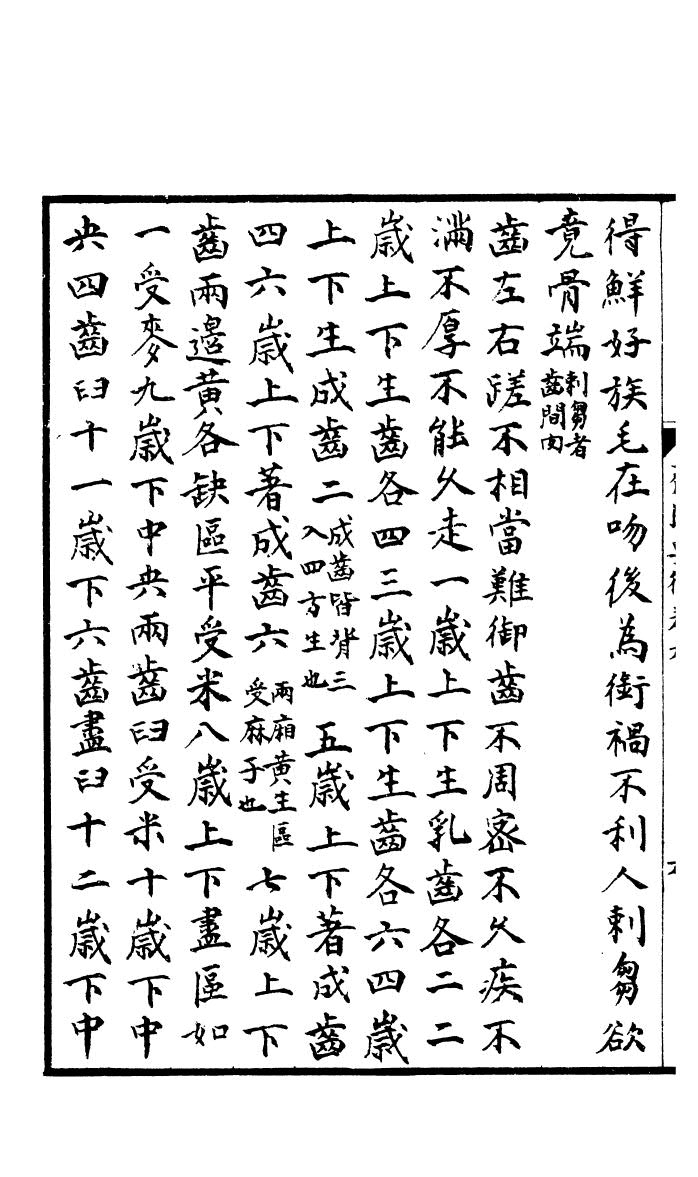 得鮮好旋毛在吻後為銜禍不利人刺芻欲
竟骨端刺芻者齒間肉
齒左右蹉不相當難御齒不周密不久疾不
滿不厚不能久走一歲上下生乳齒各二二
歲上下生齒各四三歲上下生齒各六四歲
上下生成齒二成齒皆背三入四方生也五歲上下著成齒
四六歲上下著成齒六兩廂黃生區受麻子也七歲上下
齒兩邊黃各缺區平受米八歲上下盡區如
一受麥九歲下中央兩齒臼受米十歲下中
央四齒臼十一歲下六齒盡臼十二歲下中